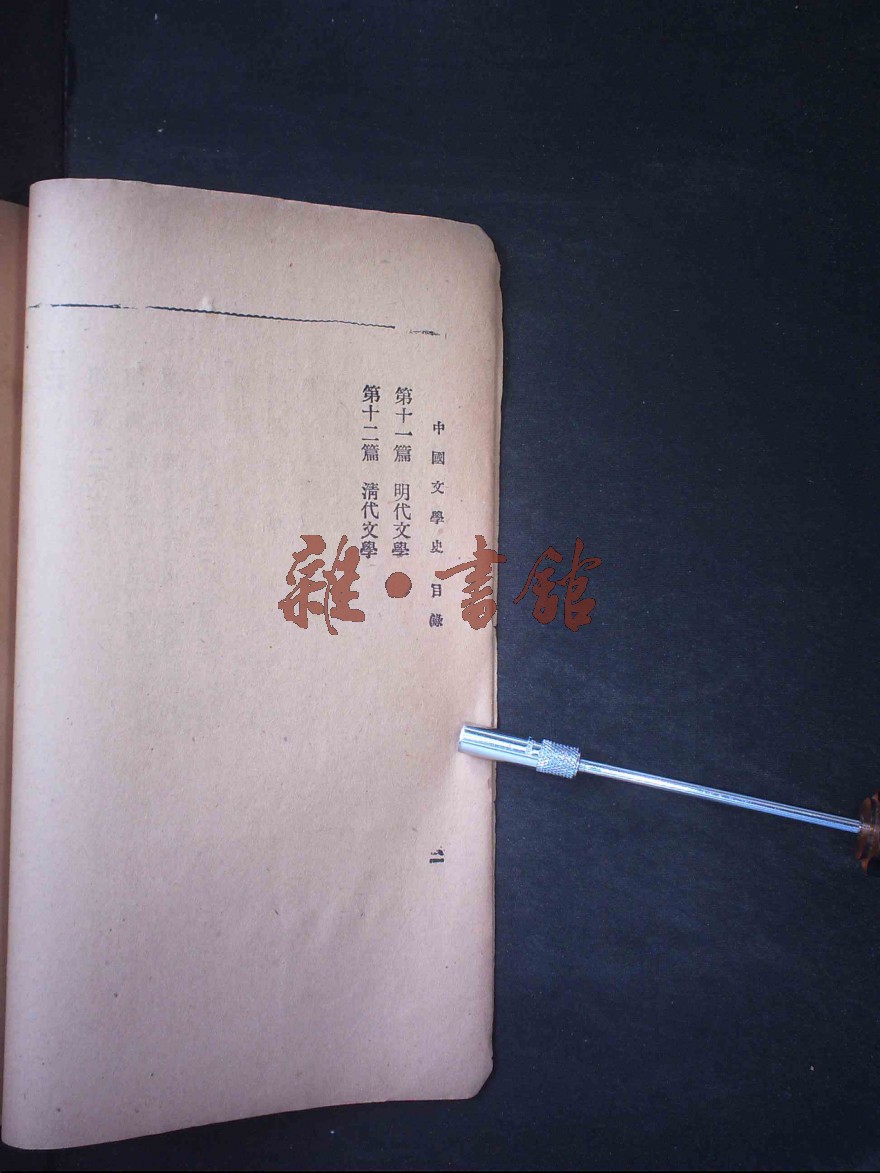 中國文學史 目錄
第十一篇 明代文學
第十二篇 清代文學
二
雜·書館